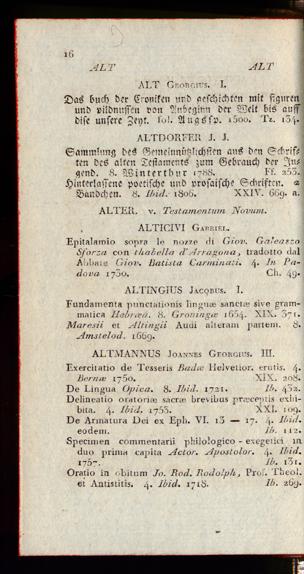 16
ALT ALT
ALT Georgius. I.
Das buch der Croniken und geschichten mit figuren
und pildnussen von Anbeginn der Welt bis auff
dise unsere Zeyt. fol. Augsp. 1500. Tz. 134.
ALTDORFER J. J.
Sammlung des Gemeinnützlichsten aus den Schrif-
ten des alten Testaments zum Gebrauch der Ju-
gend. 8. Winterthur 1788. Ff. 253.
Hinterlassene poetische und prosaische Schriften. 2
Bändchen. 8. Ibid. 1806. XXIV. 669. a.
ALTER. v. Testamentum Novum.
ALTICIVI Gabriel.
Epitalamio sopra le nozze di Giov. Galeazzo
Sforza con thabella d'Arragona, tradotto dal
Abbate Giov. Batista Carminati. 4. In Pa-
dova 1730. Ch. 49.
ALTINGIUS Jacobus. I.
Fundamenta punctationis linguæ sanctæ sive gram-
matica Hebræa. 8. Groningæ 1654. XIX. 371.
Maresii et Altingii Audi alteram partem. 8.
Amstelod. 1669.
ALTMANNUS Joannes Georgius. III.
Exercitatio de Tesseris Badæ Helvetior. erutis. 4.
Bernæ 1750. XIX. 208.
De Lingua Opica. 8. Ibid. 1721. Ib. 432.
Delineatio oratoriæ sacræ brevibus præceptis exhi-
bita. 4. Ibid. 1753. XXI. 109.
De Armatura Dei ex Eph. VI. 13 — 17. 4. Ibid.
eodem. Ib. 112.
Specimen commentarii philologico-exegetici in
duo prima capita Actor. Apostolor. 4. Ibid.
1757. Ib. 131.
Oratio in obitum Jo. Rod. Rodolph, Prof. Theol.
et Antistitis. 4. Ibid. 1718. Ib. 269.